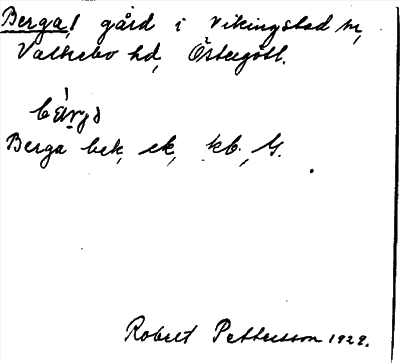 Berga, gård i Vikingstad sn,
Valkebo hd, Östergötl.
Berga bek, ek, kb, G.
Robert Pettersson 1929.